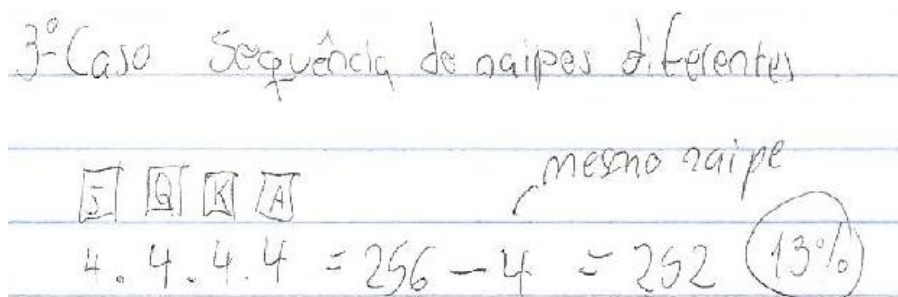 3º Caso Sequência de naipes diferentes
mesmo naipe
J Q K A
4.4.4.4 = 256 - 4 = 252 13%